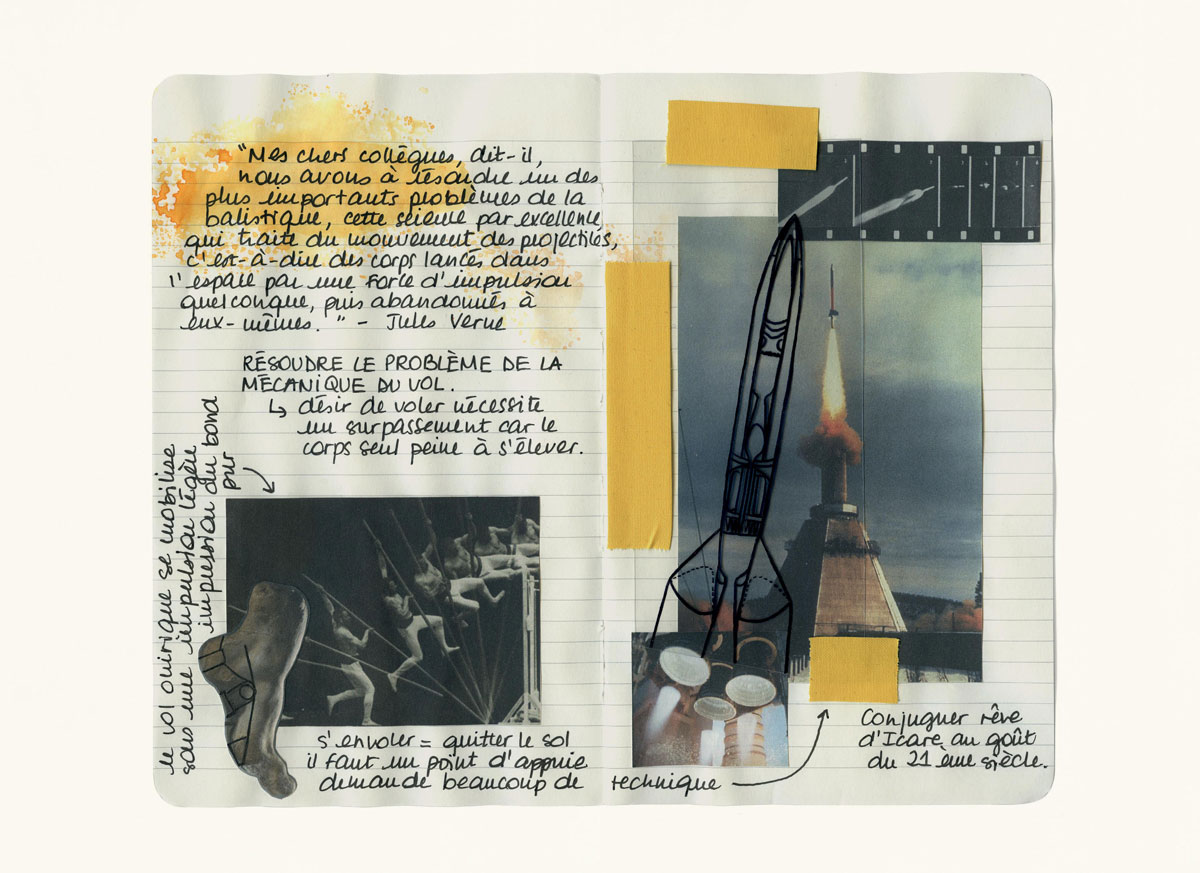 "Mes chers collègues, dit-il,
nous avons à résoudre un des
plus importants problèmes de la
balistique, cette science par excellence,
qui traite du mouvement des projectiles,
c'est-à-dire des corps lancés dans
l'espace par une force d'impulsion
quelconque, puis abandonnés à
eux-mêmes." - Jules Verne
RÉSOUDRE LE PROBLÈME DE LA
MÉCANIQUE DU VOL.
↳ désir de voler nécessite
un surpassement car le
corps seul peine à s'élever.
le vol onirique se mobilise
sous une impulsion légère
impression du bond
pur
s'envoler = quitter le sol
il faut un point d'appuie
demande beaucoup de technique
Conjuguer rêve
d'Icare au goût
du 21 ème siècle.